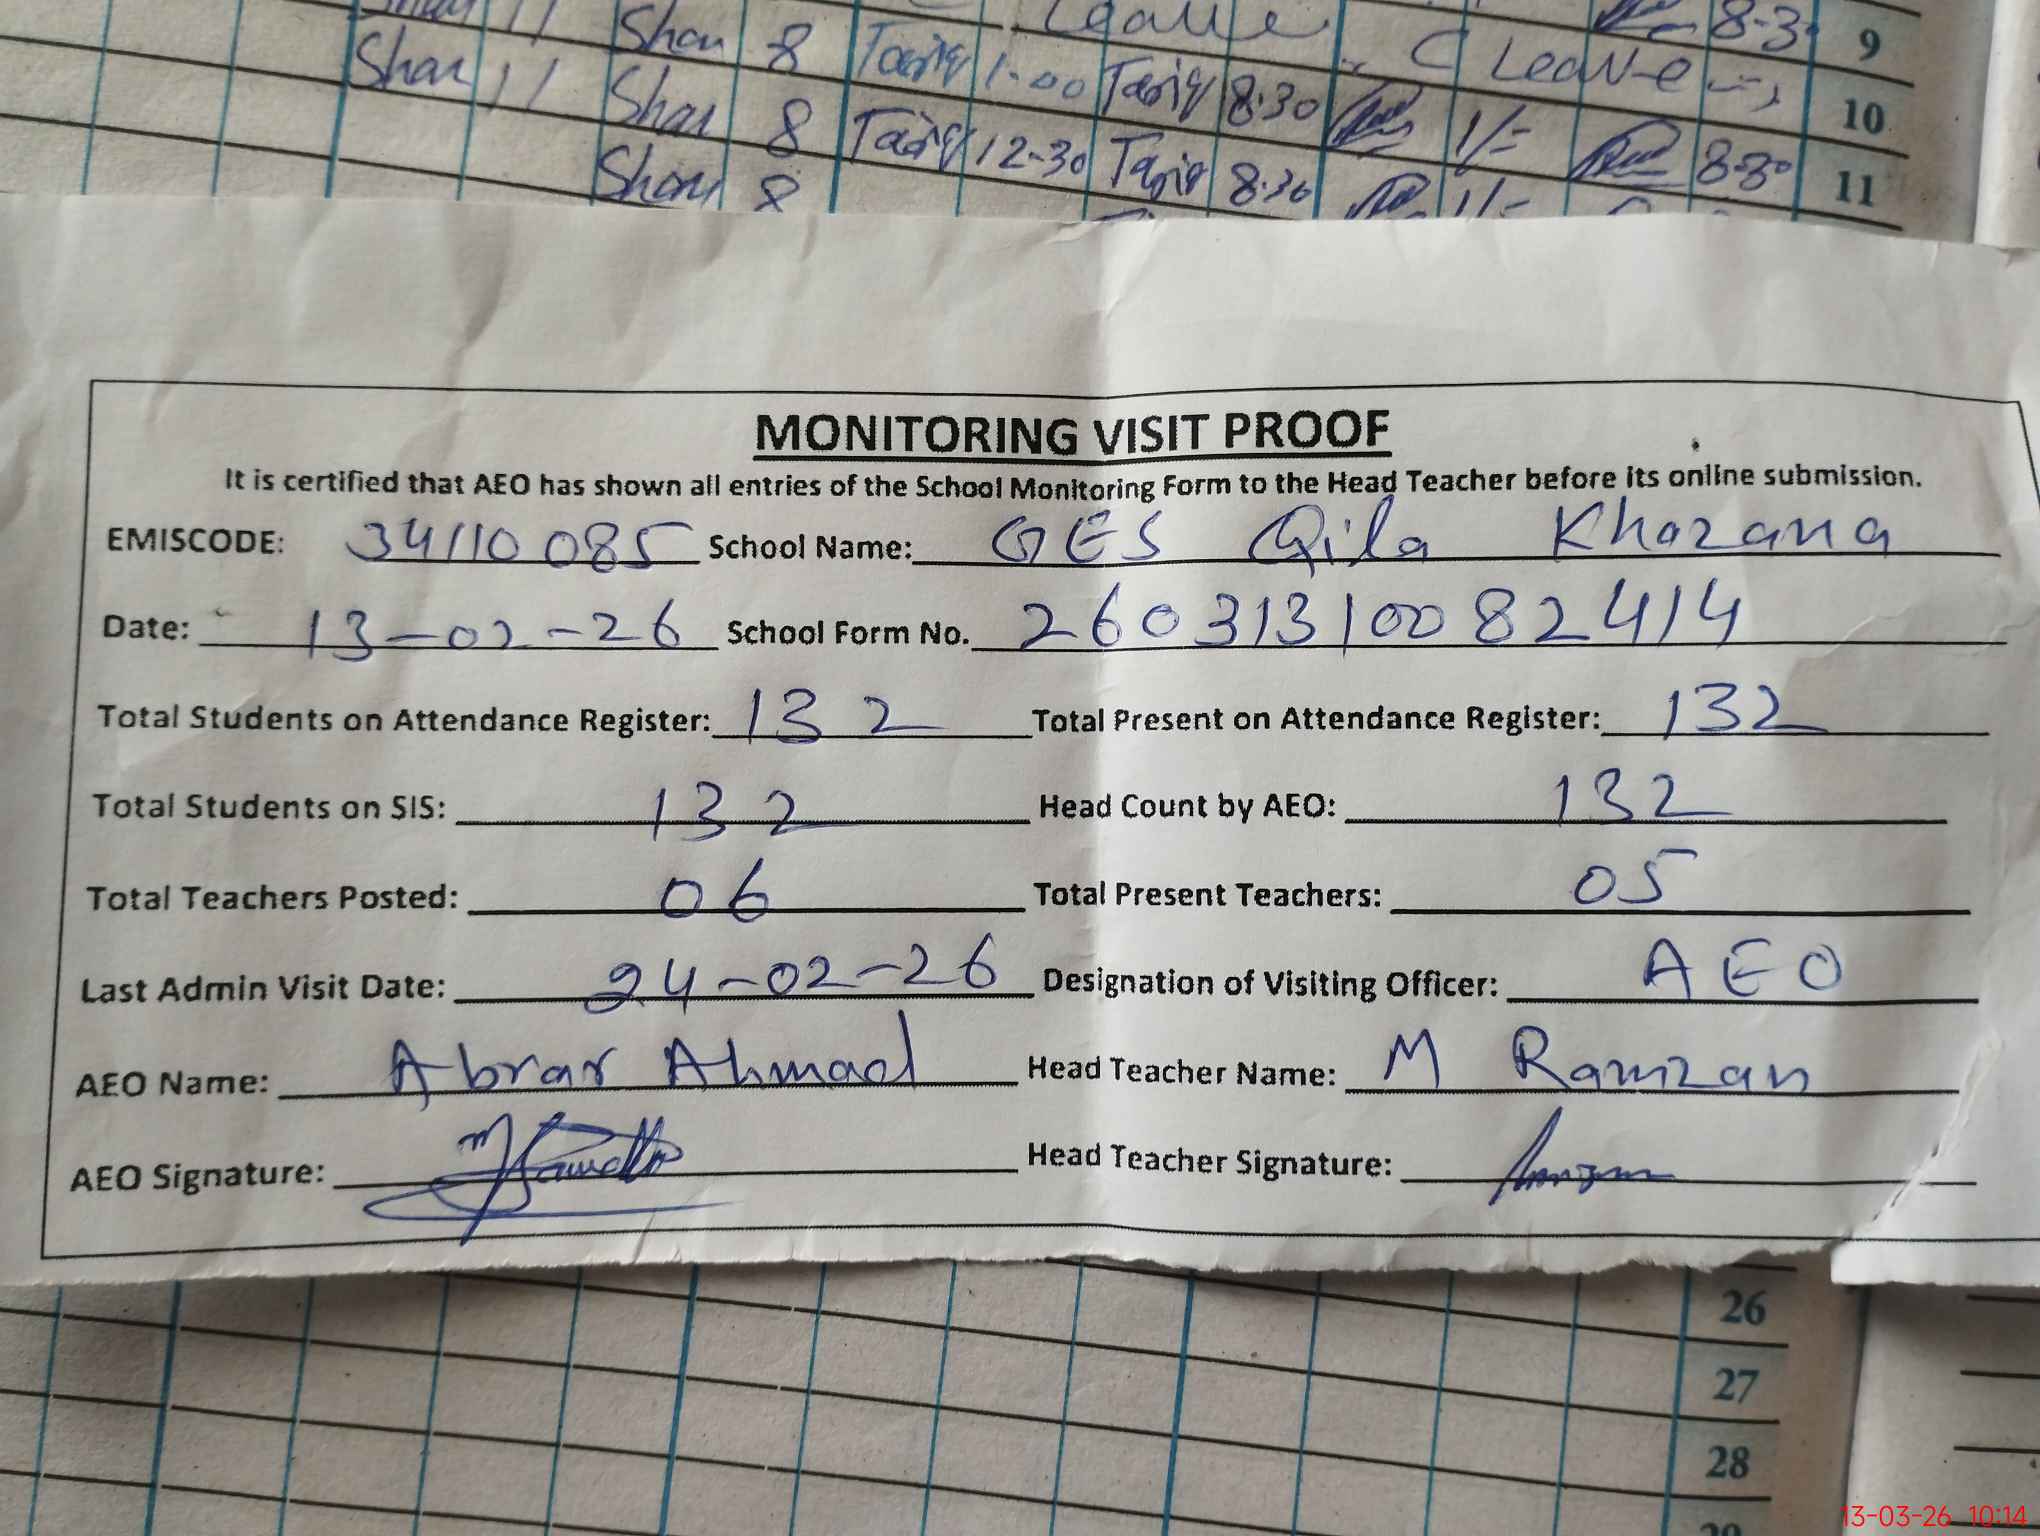 Shan 11 Shan 8 Tariq 1-00 Leave 8-30 9
Shan 11 Shan 8 Tariq 12-30 Tariq 8:30 C Leave 10
Shan 8 Tariq 8:30 1/= 8-30 11
1/-
MONITORING VISIT PROOF
It is certified that AEO has shown all entries of the School Monitoring Form to the Head Teacher before its online submission.
EMISCODE: 34110085 School Name: GES Qila Khazana
Date: 13-02-26 School Form No. 26031310082414
Total Students on Attendance Register: 132 Total Present on Attendance Register: 132
Total Students on SIS: 132 Head Count by AEO: 132
Total Teachers Posted: 06 Total Present Teachers: 05
Last Admin Visit Date: 24-02-26 Designation of Visiting Officer: AEO
AEO Name: Abrar Ahmad Head Teacher Name: M Ramzan
AEO Signature: Head Teacher Signature:
26
27
28
29
13-03-26 10:14